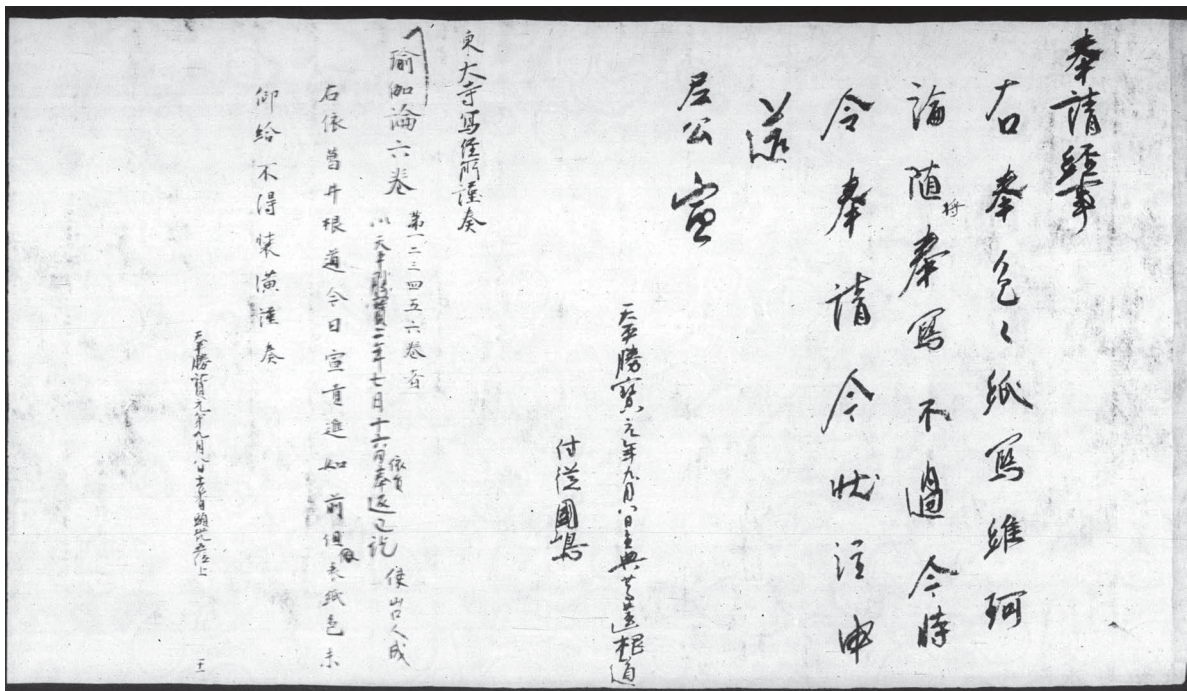 奉請経事
右奉色々紙寫維珂
論随将奉寫不過今時
令奉請今状注申
以送
尼公宣
天平勝寶元年九月八日主典葛井根道
付従國嶋
東大寺寫経所謹奏
瑜伽論六巻 第一二三四五六巻者
以天平勝寶二年七月十六日依員奉返已訖 使山口人成
右依葛井根道今日宣重進如前但表紙色未
仰給不得装潢謹奏
天平勝寶元年九月八日